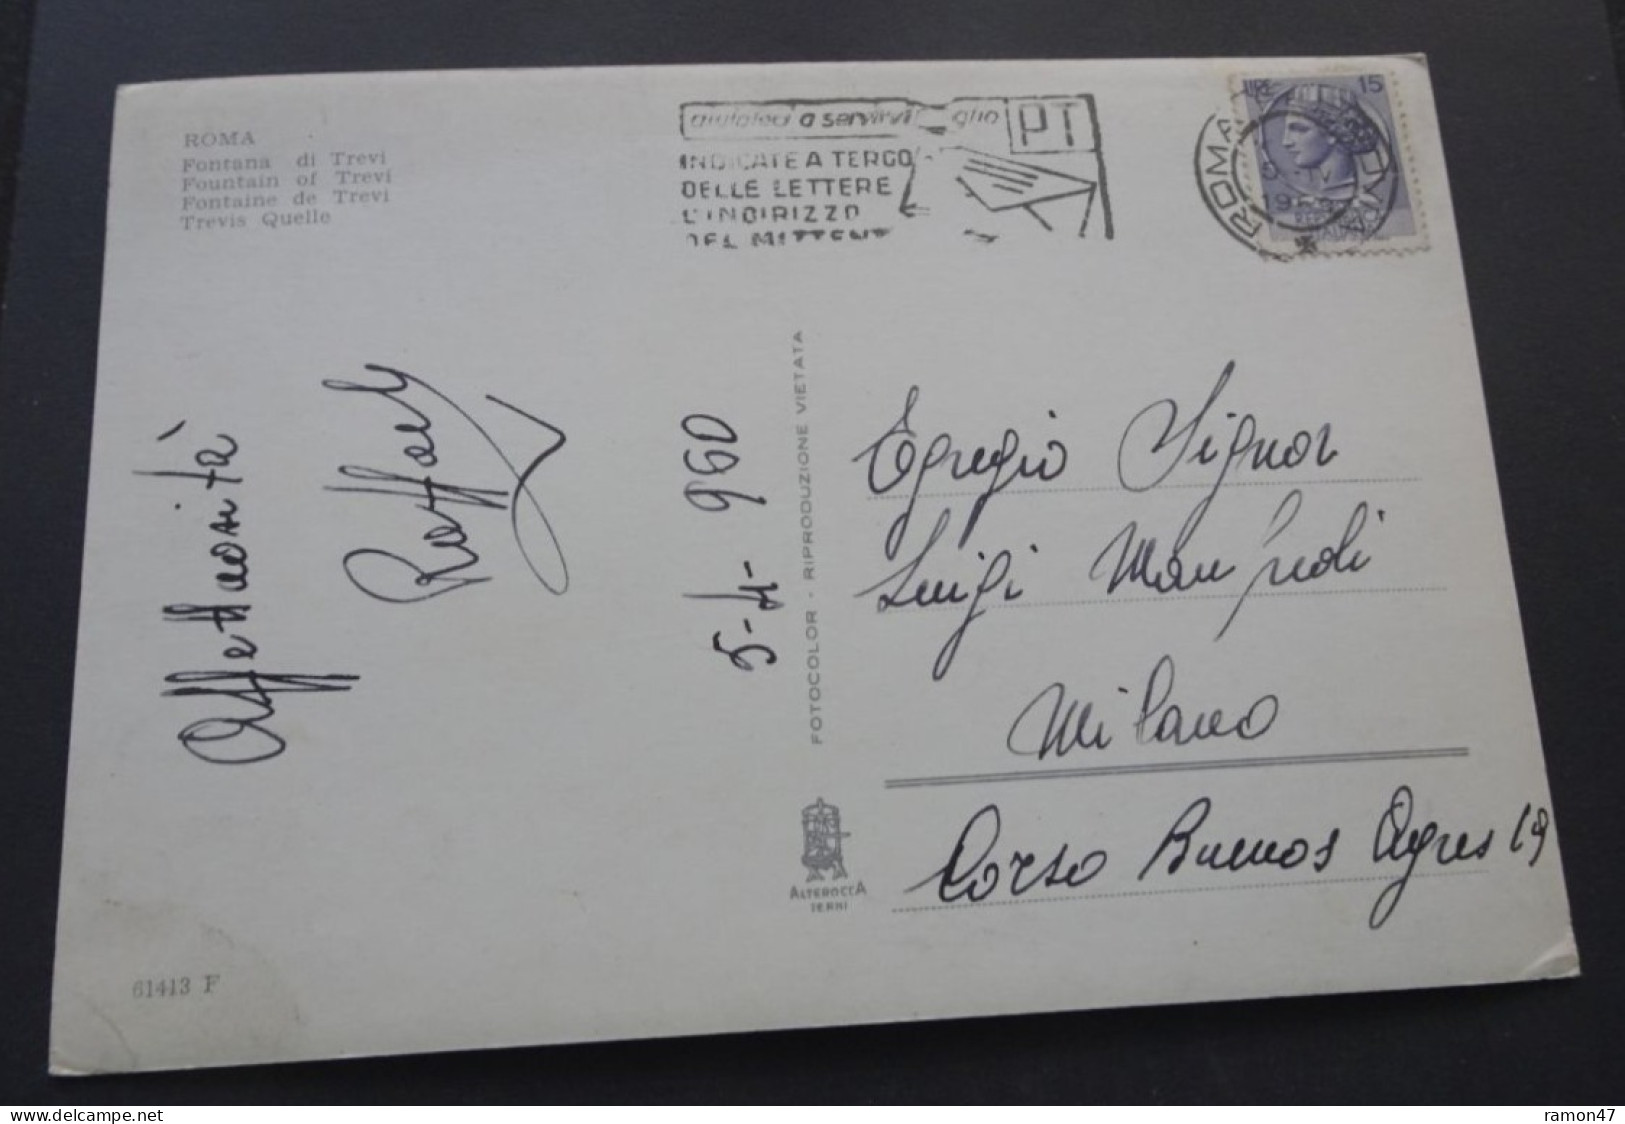 ROMA
Fontana di Trevi
Fountain of Trevi
Fontaine de Trevi
Trevis Quelle
aiutateci a servirvi glio PT
INDICATE A TERGO
DELLE LETTERE
L'INDIRIZZO
DEL MITTENTE
ROMA
LIRE 15
Affettuosità
Raffaele
5-4-960
FOTOCOLOR - RIPRODUZIONE VIETATA
Egregio Signor
Luigi Manfredi
Milano
Corso Buenos Ayres 19
ALTEROCCA
TERNI
61413 F
www.delcampe.net
ramon47